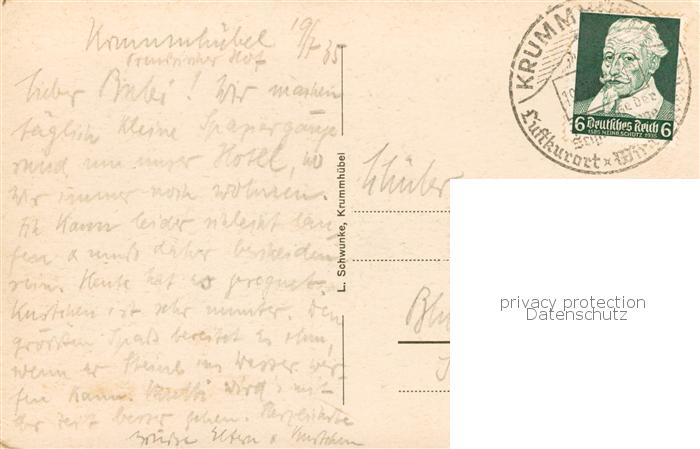 Krummhübel 19/7 35
Preussischer Hof
Lieber Bubi! Wir machen
täglich kleine Spaziergänge
rund um unser Hotel, wo
wir immer noch wohnen.
Ich kann leider schlecht lau-
fen & muß daher bescheiden
sein. Heute hat es geregnet.
ist sehr munter. Den
größten Spaß bereitet es ihm,
wenn er Steine ins Wasser wer-
fen kann. wird's mit
der Zeit besser gehen. Herzlichste
Grüße Eltern &
L. Schwunke, Krummhübel
Schüler
KRUMMHÜBEL
Luftkurort x
6 Deutsches Reich 6
1585 HEINR. SCHÜTZ 1935
privacy protection
Datenschutz